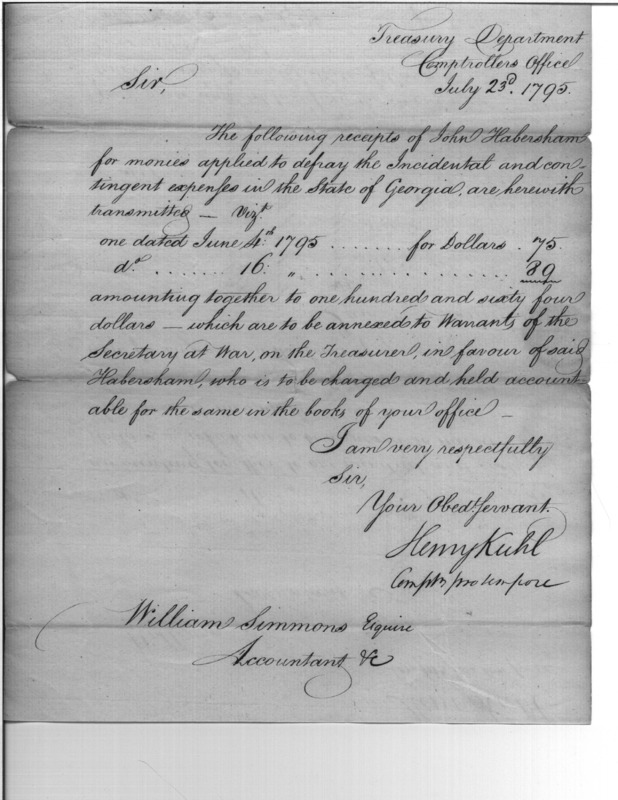 Treasury Department
Comptrollers Office
July 23d. 1795.
Sir,
The following receipts of John Habersham
for monies applied to defray the Incidental and con-
tingent expenses in the State of Georgia, are herewith
transmitted — Vizt.
one dated June 4th. 1795 ....... for Dollars . 75.
do ....... 16. „ ....................... 89
amounting together to one hundred and sixty four
dollars — which are to be annexed to Warrants of the
Secretary at War, on the Treasurer, in favour of said
Habersham, who is to be charged and held account-
able for the same in the books of your office —
I am very respectfully
Sir,
Your Obedt. Servant.
Henry Kuhl
Comptr. pro tempore
William Simmons Esquire
Accountant &c